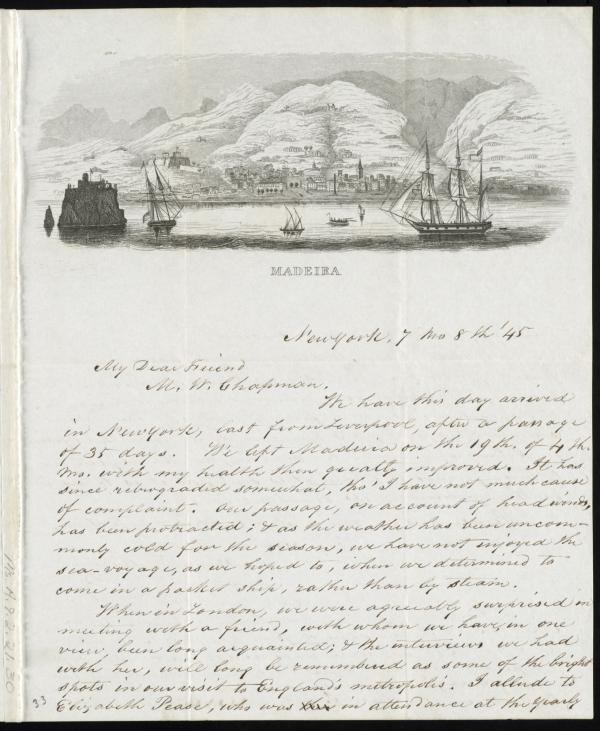 MADEIRA
New York, 7 Mo 8th '45
My Dear Friend
M. W. Chapman.
We have this day arrived
in New York, last from Liverpool, after a passage
of 35 days. We left Madeira on the 19th. of 4th.
Mo. with my health then greatly improved. It has
since retrograded somewhat, tho' I have not much cause
of complaint. Our passage, on account of head winds,
has been protracted; & as the weather has been uncom-
monly cold for the season, we have not enjoyed the
sea-voyage, as we hoped to, when we determined to
come in a packet ship, rather than by steam.
When in London, we were agreeably surprised in
meeting with a friend, with whom we have, in one
view, been long acquainted; & the interviews we had
with her, will long be remembered as some of the bright
spots in our visit to England's metropolis. I allude to
Elizabeth Pease, who was in attendance at the yearly
33
Ms. A.9.2.21.30